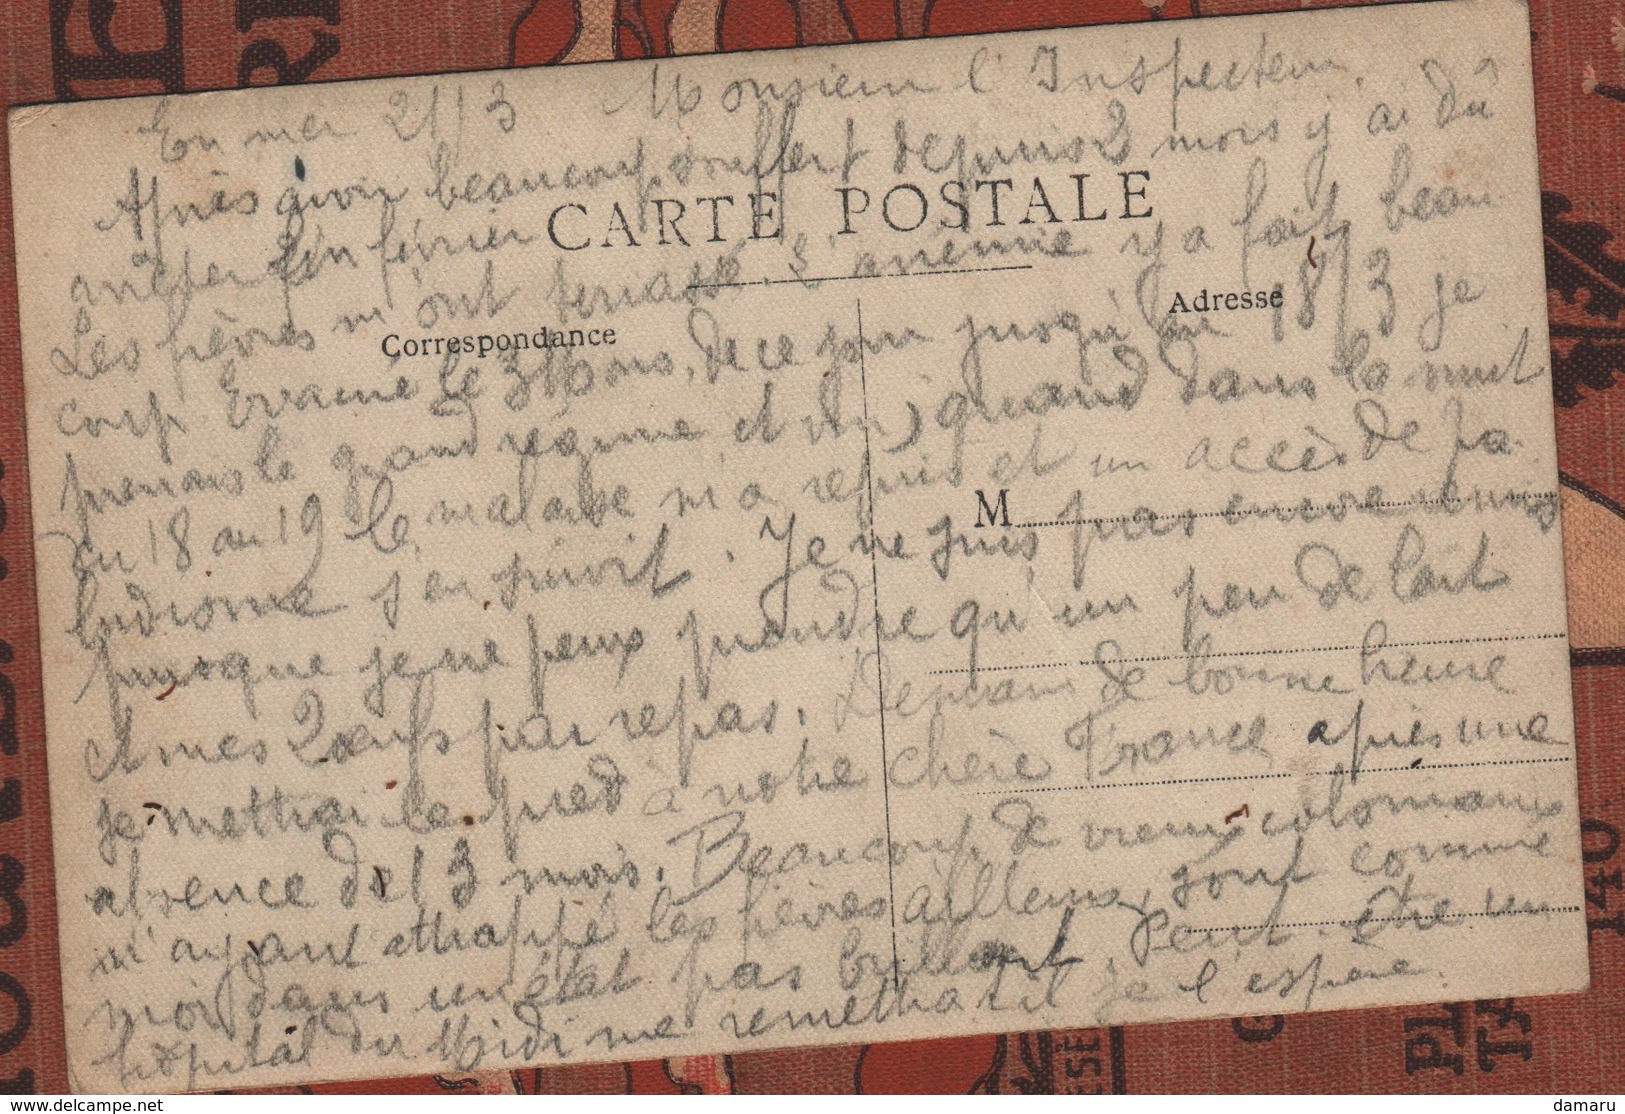 En mer 21/3 Monsieur l'Inspecteur,
Après avoir beaucoup souffert depuis 2 mois j'ai dû
CARTE POSTALE
arrêter fin février
Les fièvres m'ont terrassé. L'anémie y a fait beau
Correspondance
Adresse
coup Evacué le 3 Mars, de ce jour jusqu'au 18/3 je
prenais le grand régime et quand dans la nuit
du 18 au 19 le malaise m'a repris et un accès de pa
M
ludisme s'en suivit. Je ne suis pas encore remis
puisque je ne peux prendre qu'un peu de lait
et mes 2 œufs par repas. Demain de bonne heure
je mettrai le pied à notre chère France après une
absence de 13 mois. Beaucoup de vieux coloniaux
m'ayant attrappé les fièvres ailleurs, sont comme
moi dans un état pas brillant. Peut-être un
hôpital du Midi me remettra t il je l'espère.
140.
delcampe.net
damaru